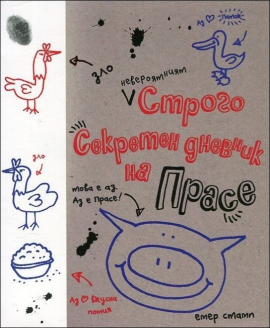 Аз ♥ Паток
зло
невероятният
Строго
Секретен дневник
на Прасе
зло
това е аз.
Аз е Прасе!
Аз ♥ вкусна
помия
емер стамп